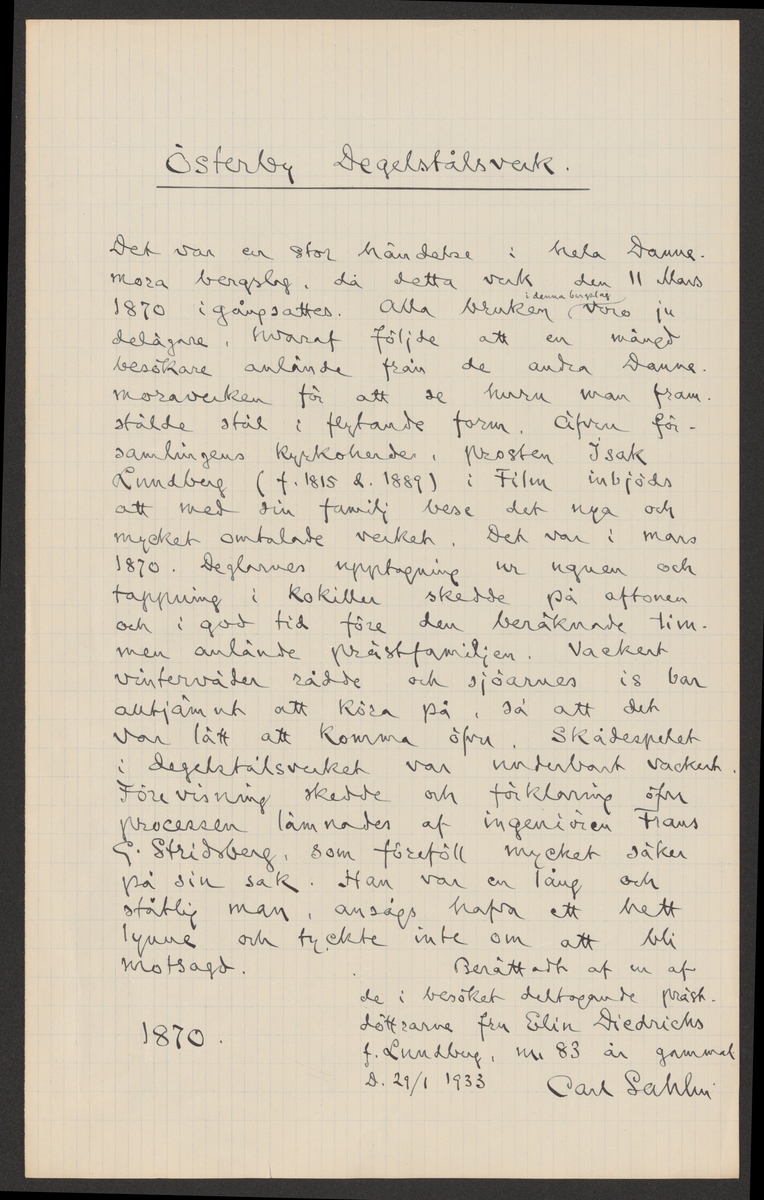 Österby Degelstålsverk.
Det var en stor händelse i hela Danne-
mora bergslag, då detta verk den 11 Mars
i denna bergslag
1870 igångsattes. Alla bruken voro ju
delägare, hvaraf följde att en mängd
besökare anlände från de andra Danne-
moraverken för att se huru man fram-
stälde stål i flytande form. Äfven för-
samlingens kyrkoherde, prosten Isak
Lundberg (f. 1815 d. 1889) i Film inbjöds
att med sin familj bese det nya och
mycket omtalade verket. Det var i mars
1870. Deglarnes upptagning ur ugnen och
tappning i kokiller skedde på aftonen
och i god tid före den beräknade tim-
men anlände prästfamiljen. Vackert
vinterväder rådde och sjöarnes is bar
alltjämnt att köra på, så att det
var lätt att komma öfver. Skådespelet
i degelstålsverket var underbart vackert.
Förevisning skedde och förklaring öfver
processen lämnades af ingeniören Frans
G. Stridsberg, som föreföll mycket säker
på sin sak. Han var en lång och
ståtlig man, ansågs hafva ett hett
lynne och tyckte inte om att bli
motsagd. Berättadt af en af
de i besöket deltagande präst-
döttrarna fru Elin Diedrichs
f. Lundberg, nu 83 år gammal
D. 29/1 1933 Carl Sahlin
1870.